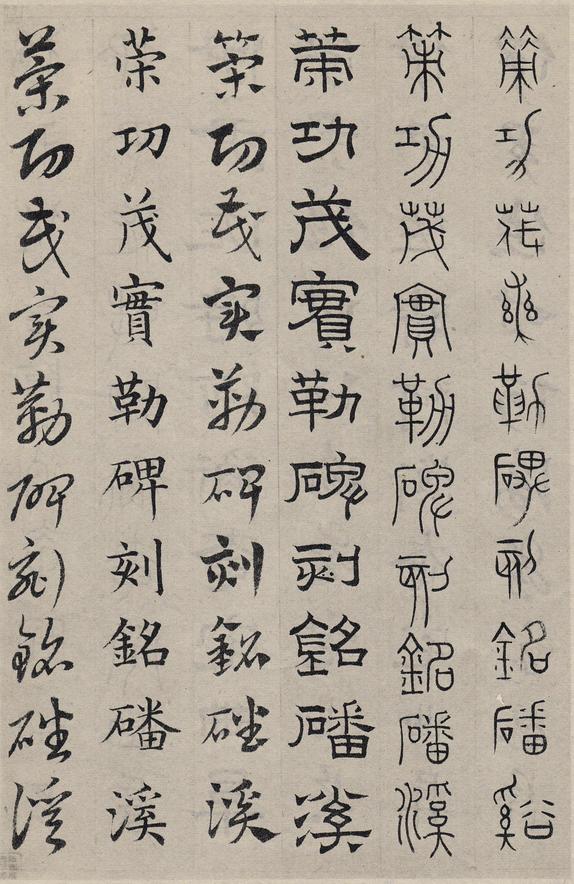 策功茂實勒碑刻銘磻谿
策功茂實勒碑刻銘磻溪
策功茂實勒碑刻銘磻溪
策功茂實勒碑刻銘磻溪
策功茂實勒碑刻銘磻溪
策功茂實勒碑刻銘磻溪